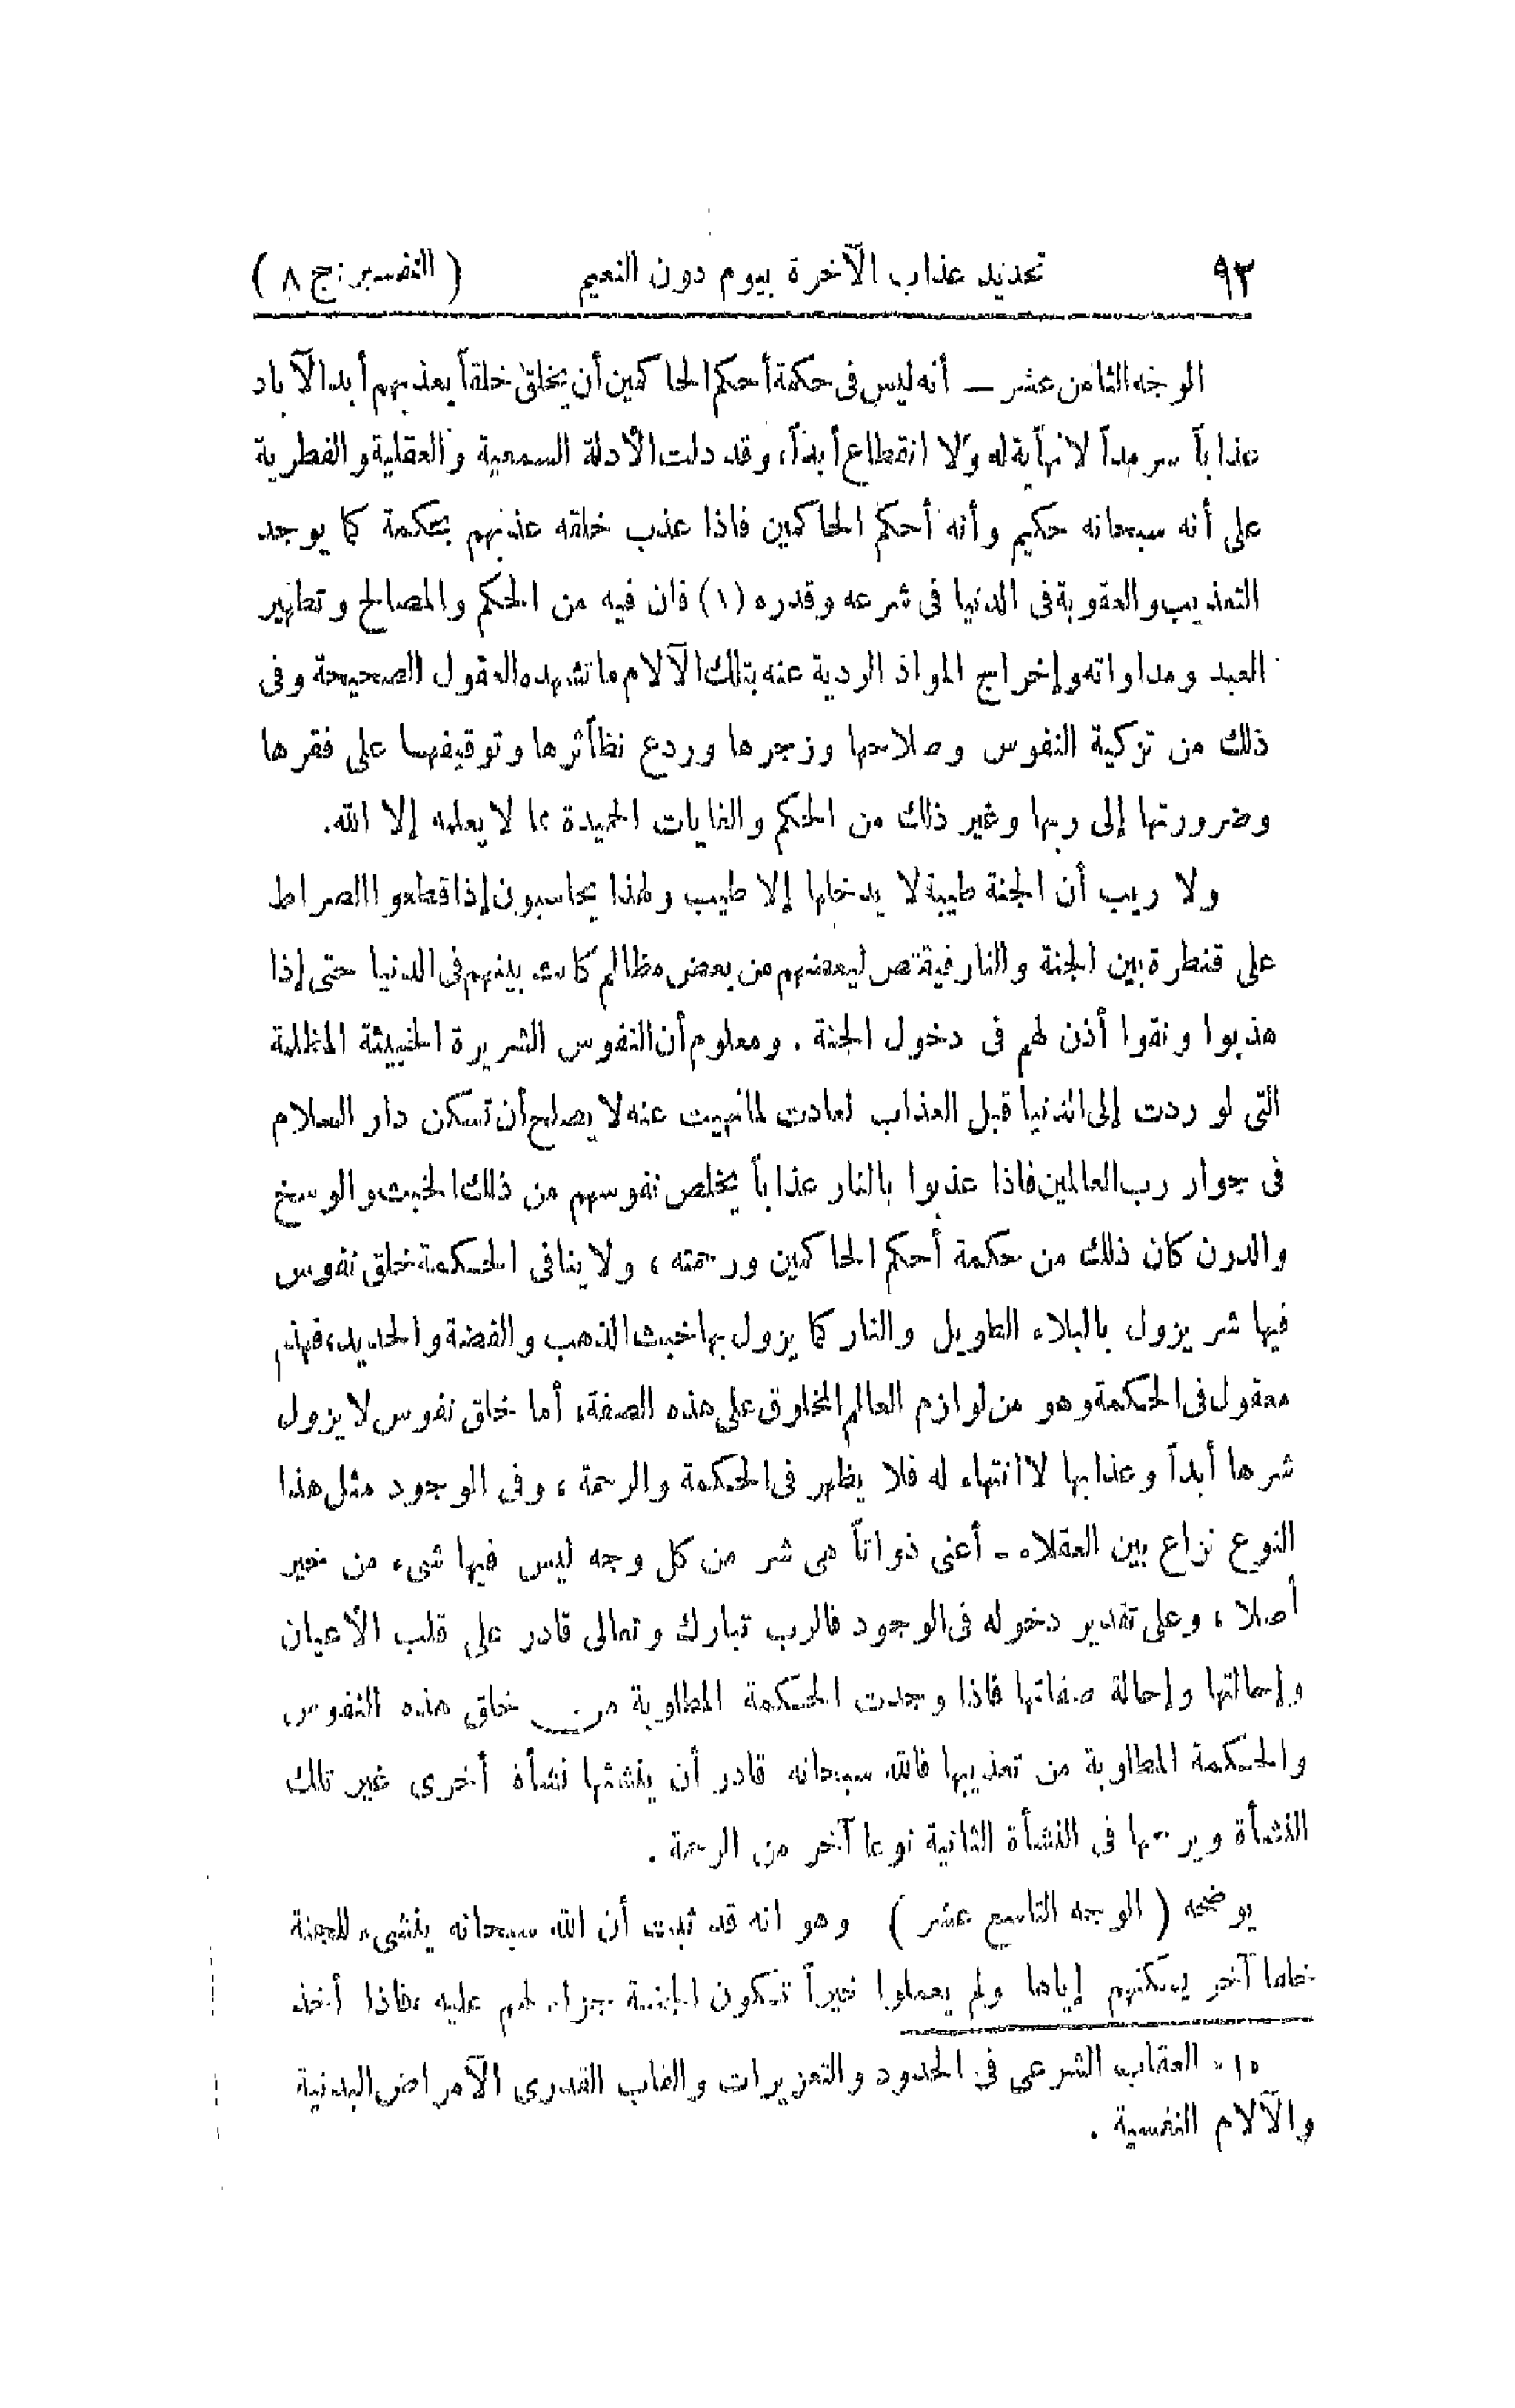 ٩٣ تحديد عذاب الآخرة بيوم دون النعيم (التفسير: ج ٨)
الوجه الثامن عشر ــ أنه ليس فى حكمة أحكم الحاكمين أن يخلق خلقاً يعذبهم أبد الآباد
عذاباً سرمداً لا نهاية له ولا انقطاع أبداً، وقد دلت الأدلة السمعية والعقلية والفطرية
على أنه سبحانه حكيم وأنه أحكم الحاكمين فاذا عذب خلقه عذبهم بحكمة كما يوجد
التعذيب والعقوبة فى الدنيا فى شرعه وقدره (١) فان فيه من الحكم والمصالح وتطهير
العبد ومداواته وإخراج المواد الردية عنه بتلك الآلام ما تشهده العقول الصحيحة وفى
ذلك من تزكية النفوس وصلاحها وزجرها وردع نظائرها وتوقيفها على فقرها
وضرورتها إلى ربها وغير ذلك من الحكم والغايات الحميدة ما لا يعلمه إلا الله.
ولا ريب أن الجنة طيبة لا يدخلها إلا طيب ولهذا يحاسبون إذا قطعوا الصراط
على قنطرة بين الجنة والنار فيقتص لبعضهم من بعض مظالم كانت بينهم فى الدنيا حتى إذا
هذبوا ونقوا أذن لهم فى دخول الجنة . ومعلوم أن النفوس الشريرة الخبيثة المظلمة
التى لو ردت إلى الدنيا قبل العذاب لعادت لما نهيت عنه لا يصلح أن تسكن دار السلام
فى جوار رب العالمين فاذا عذبوا بالنار عذاباً يخلص نفوسهم من ذلك الخبث والوسخ
والدرن كان ذلك من حكمة أحكم الحاكمين ورحمته ، ولا ينافى الحكمة خلق نفوس
فيها شر يزول بالبلاء الطويل والنار كما يزول بها خبث الذهب والفضة والحديد، فهذا
معقول فى الحكمة وهو من لوازم العالم المخلوق على هذه الصفة، أما خلق نفوس لا يزول
شرها أبداً وعذابها لا انتهاء له فلا يظهر فى الحكمة والرحمة ، وفى الوجود مثل هذا
النوع نزاع بين العقلاء - أعنى ذواتاً هى شر من كل وجه ليس فيها شىء من خير
أصلا ، وعلى تقدير دخوله فى الوجود فالرب تبارك وتعالى قادر على قلب الأعيان
وإحالتها وإحالة صفاتها فاذا وجدت الحكمة المطلوبة من خلق هذه النفوس
والحكمة المطلوبة من تعذيبها فالله سبحانه قادر أن ينشئها نشأة أخرى غير تلك
النشأة ويرحمها فى النشأة الثانية نوعا آخر من الرحمة .
يوضحه ( الوجه التاسع عشر ) وهو انه قد ثبت أن الله سبحانه ينشىء للجنة
خلقا آخر يسكنهم إياها ولم يعملوا خيراً تكون الجنة جزاء لهم عليه ، فاذا أخذ
«١» العقاب الشرعى فى الحدود والتعزيرات والعاب القدرى الآمراض البدنية
والآلام النفسية .